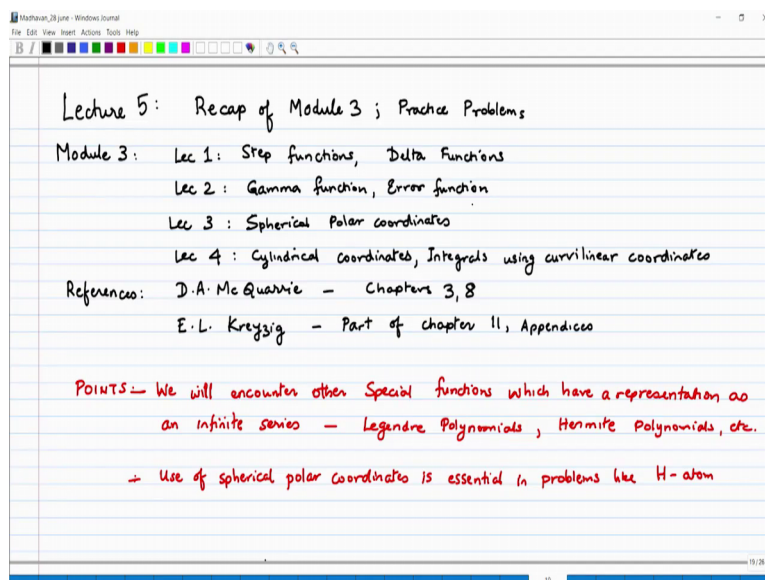 Madhavan_28 june - Windows Journal
File Edit View Insert Actions Tools Help
B I
Lecture 5: Recap of Module 3 ; Practice Problems
Module 3: Lec 1: Step functions, Delta Functions
Lec 2: Gamma function, Error function
Lec 3 : Spherical Polar coordinates
Lec 4 : Cylindrical coordinates, Integrals using curvilinear coordinates
References: D.A. McQuarrie - Chapters 3, 8
E.L. Kreyzig - Part of chapter 11, Appendices
POINTS :- We will encounter other Special functions which have a representation as
an infinite series - Legendre Polynomials, Hermite Polynomials, etc.
- Use of spherical polar coordinates is essential in problems like H-atom
19/26